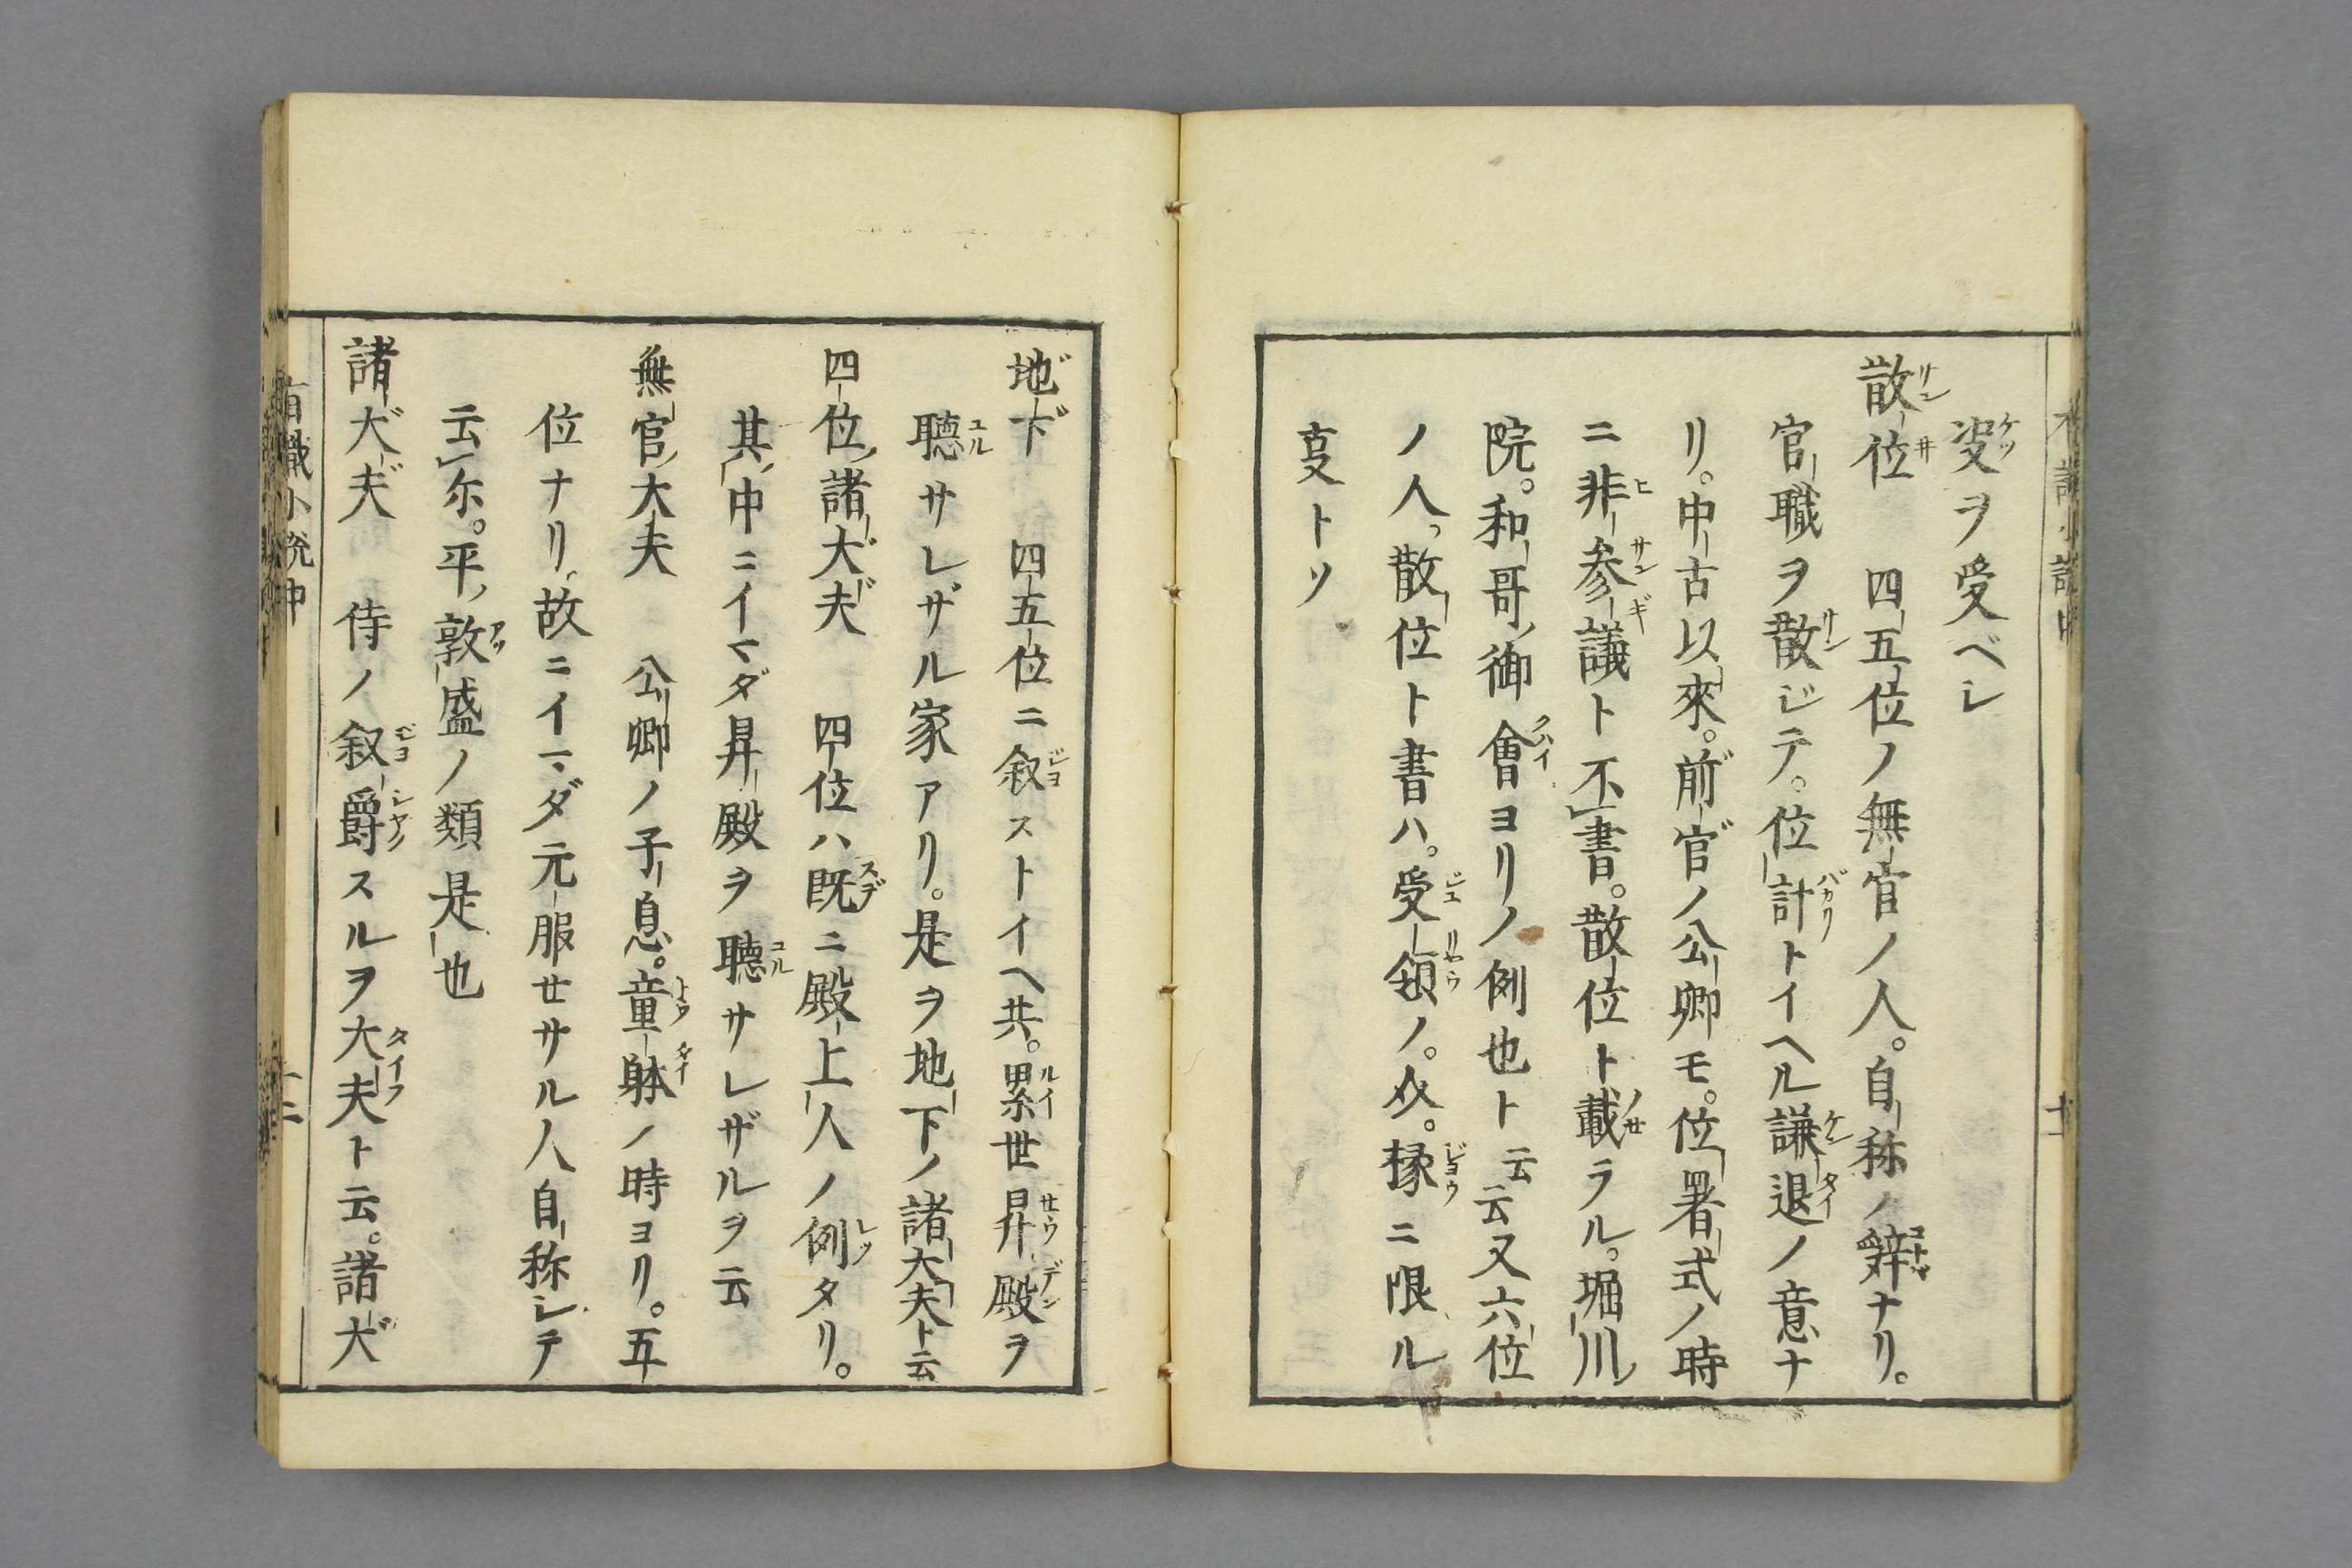 姿ヲ受ベシ
散位　四五位ノ無官ノ人。自称ノ辞ナリ。
官職ヲ散ジテ。位計トイヘル謙退ノ意ナ
リ。中古以來。前官ノ公卿モ。位署式ノ時
ニ非参議ト不書。散位ト載ラル。堀川
院。和哥御會ヨリノ例也ト云云又六位
ノ人。散位ト書ハ。受領ノ。
ニ限ル
㕝トソ
地下　四五位ニ叙ストイヘ共。累世昇殿ヲ
聴サレザル家アリ。是ヲ地下ノ諸大夫ト云
四位諸大夫　四位ハ既ニ殿上人ノ例タリ。
其中ニイマダ昇殿ヲ聴サレザルヲ云
無官大夫　公卿ノ子息。童躰ノ時ヨリ。五
位ナリ。故ニイマダ元服セサル人自称シテ
云尓。平敦盛ノ類是也
諸大夫　侍ノ叙爵スルヲ大夫ト云。諸大
有職小說中
十二